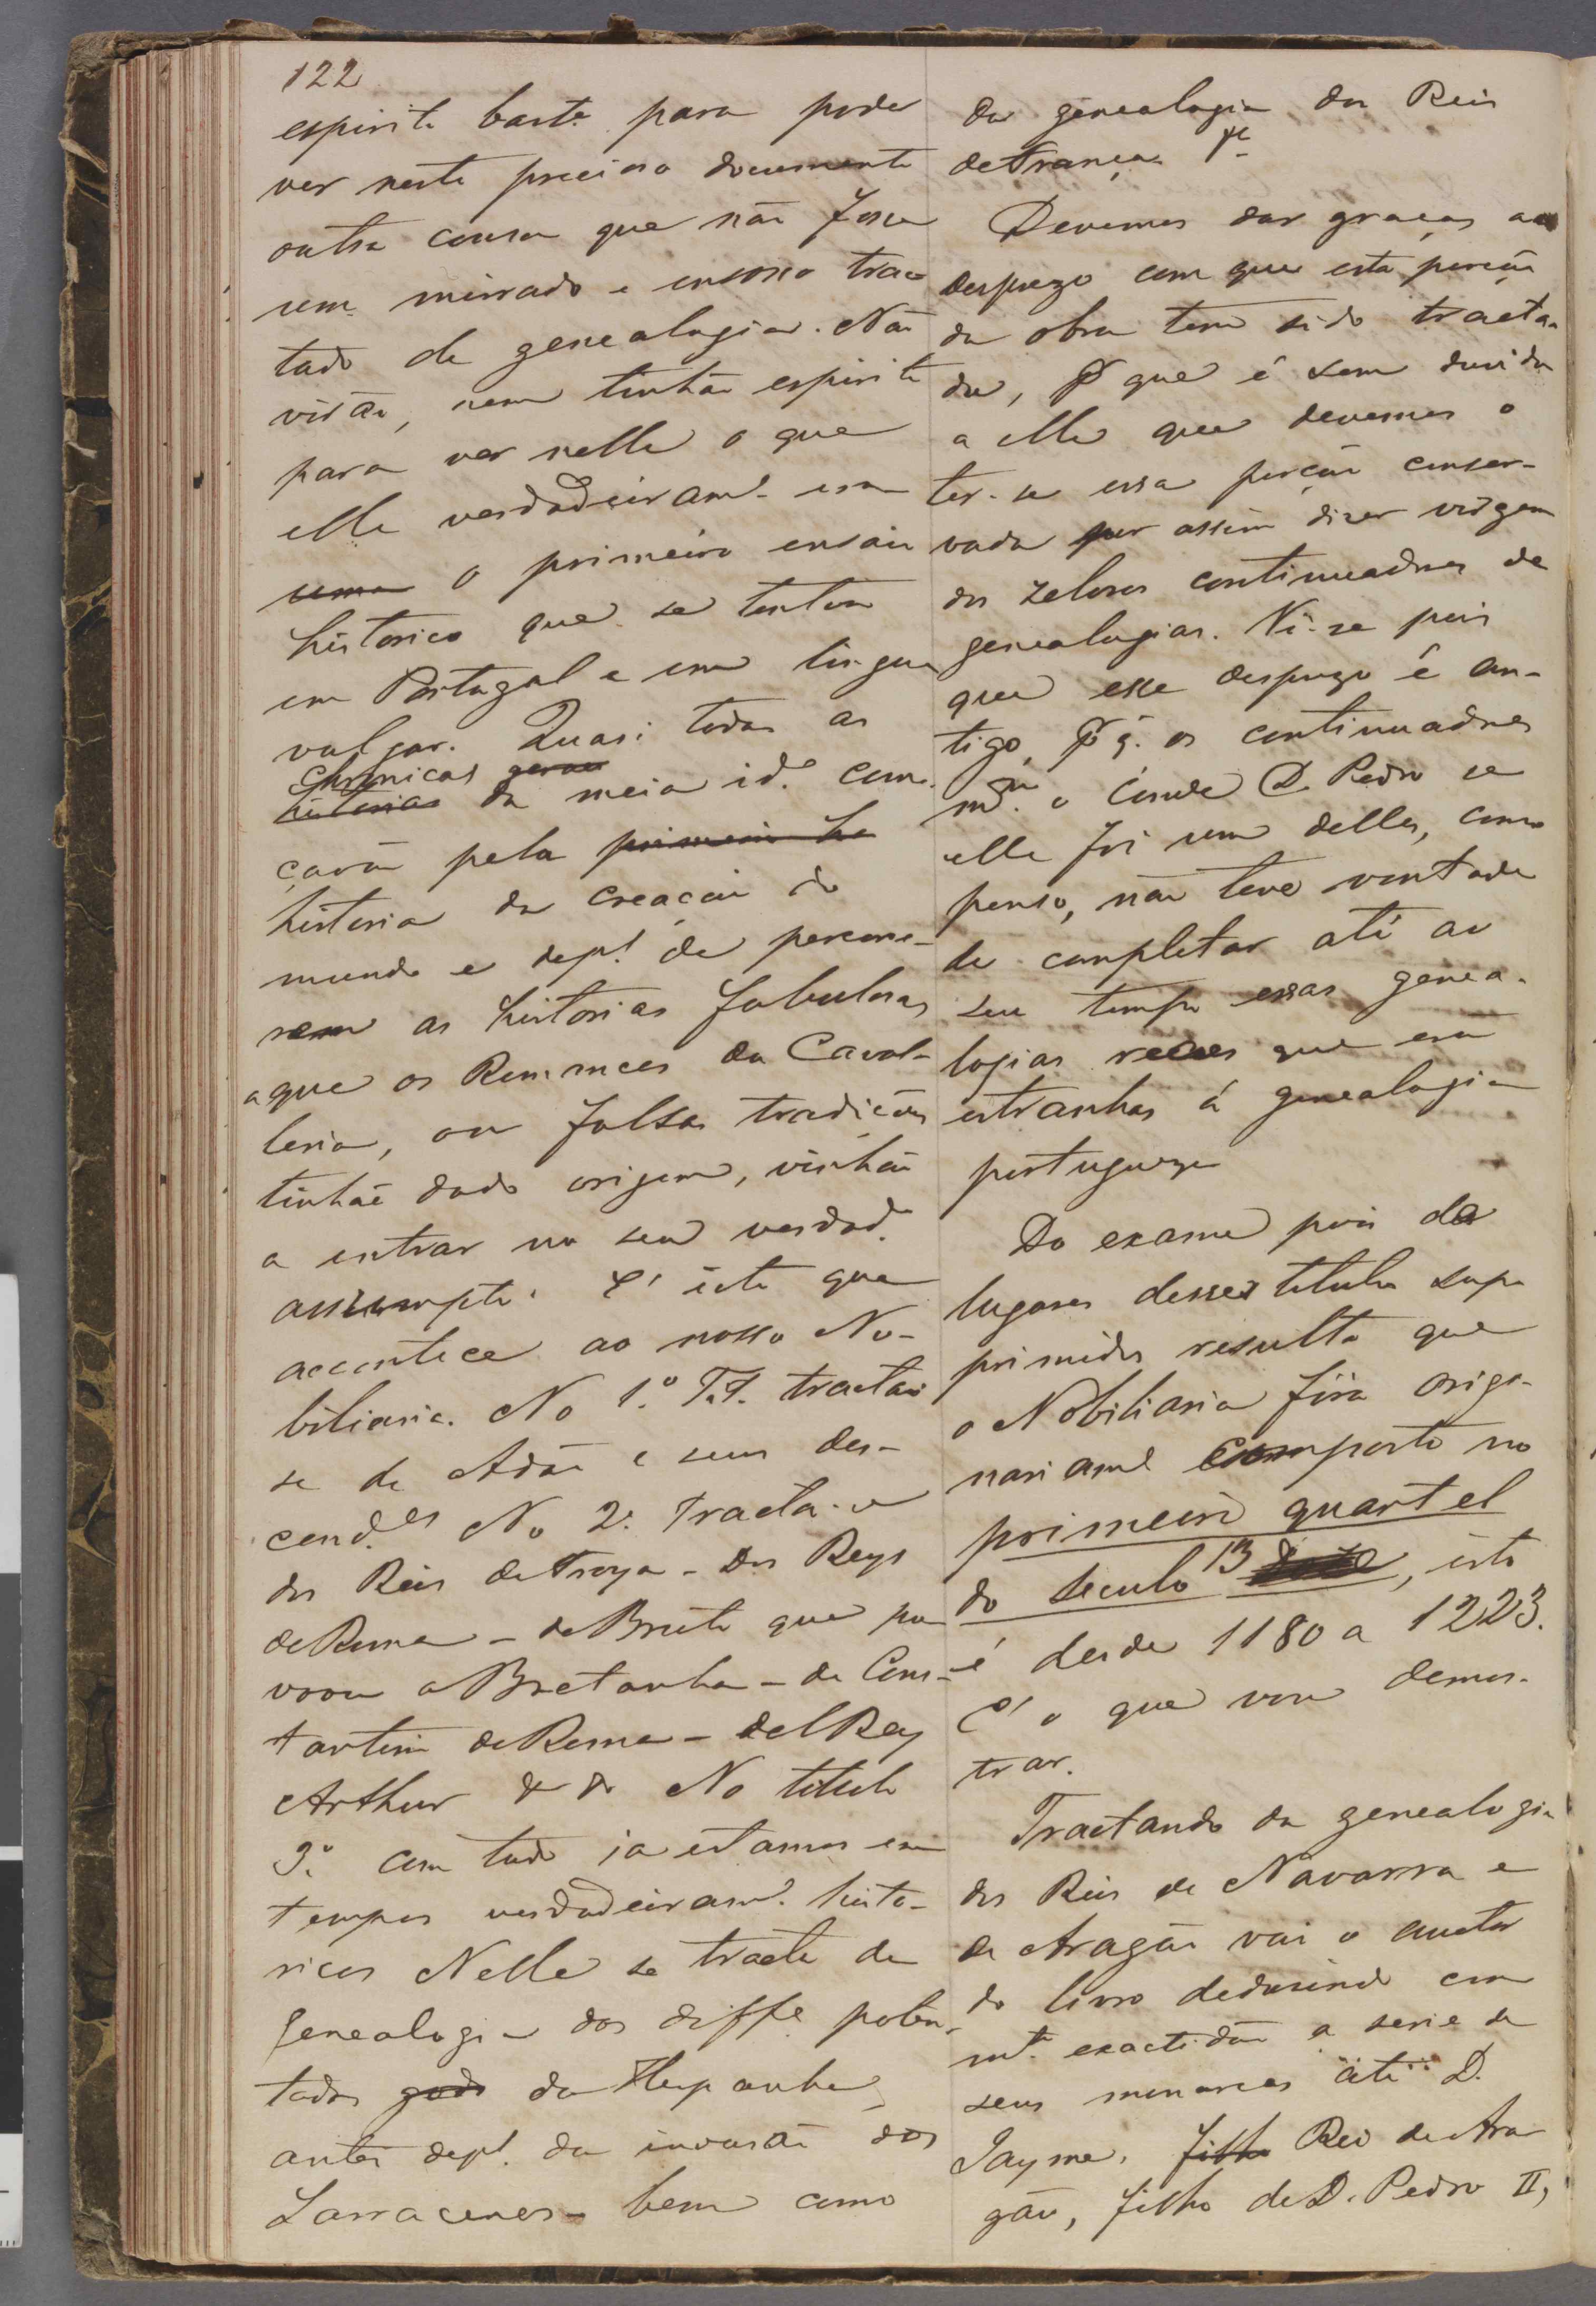 122
espirito basto para poder
ver neste precioso documento
outra cousa que não fosse
um mirrado e ensosso trac-
tado de genealogia. Não
vião, nem tinhão espirito
para ver nelle o que
elle verdadeiramᵉ era
uma o primeiro ensaio
historico que se tentou
em Portugal e em lingua
vulgar. Quasi todas as
Chronicas geraes
historias da meia idᵉ come-
çavão pela primeira ha
historia da creação do
mundo e depˢ de percorre-
rem as historias fabulosas
a que os Romances da Caval-
leria, ou falsas tradições
tinhão dado origem, vinhão
a entrar no seu verdadᵒ
assumpto. É isto que
accontece ao nosso No-
biliario. No 1.º Tit. tracta-
se de Adão e seus des-
cendᵉˢ No 2.º Tracta-se
dos Reis de Troya - Dos Reys
de Roma - de Bruto que po
voou a Bretanha - de Cons-
tantino de Roma - del Rey
Arthur & & No titulo
3.º com tudo ja estamos em
tempos verdadeiramᵉ histo-
ricos Nelle se tracta da
genealogia dos diffᵉˢ poten-
tados godos da Hespanha
antes depˢ da invasão dos
Sarracenos - bem como
da genealogia dos Reis
de França &ᶜ
Devemos dar graças ao
desprezo com que esta porção
da obra tem sido tracta-
da, pr que é sem duvida
a elle que devemos o
ter-se essa porção conser-
vada por assim dizer virgem
dos zelosos continuadores de
genealogias. Vê-se pois
que esse desprezo é an-
tigo, pr q. os continuadores
mᵐᵒ o Conde D. Pedro se
elle foi um delles, como
penso, não teve vontade
de completar até ao
seu tempo essas genea-
logias reaes que erão
estranhas á genealogia
portugueza
Do exame pois dos
lugares desses titulos sup-
primidos resulta que
o Nobiliario fôra origi-
nariamᵉ composto no
primeiro quartel
do seculo 13 doze, isto
é desde 1180 a 1223.
É o que vou demos-
trar.
Tractando da genealogia
dos Reis de Navarra e
de Aragão vai o auctor
do livro deduzindo com
mᵗᵃ exactidão a serie de
seus monarcas até D.
Jayme, filho Rei de Ara
gão, filho de D. Pedro II,